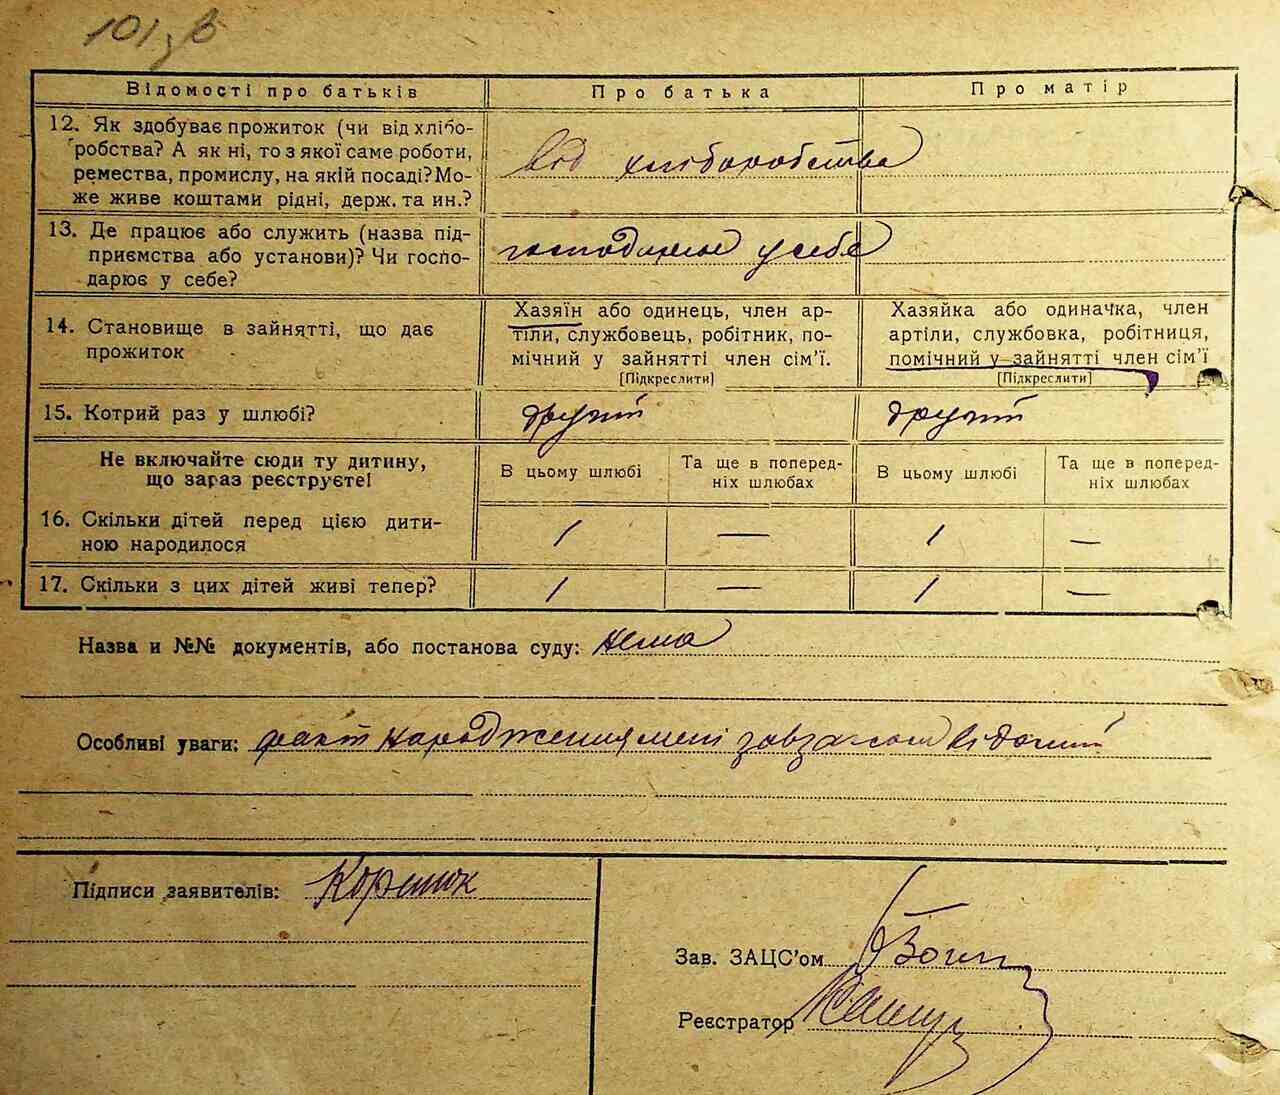 101 зв
Відомості про батьків Про батька Про матір
12. Як здобуває прожиток (чи від хлібо-
робства? А як ні, то з якої саме роботи,
ремества, промислу, на якій посаді? Мо-
же живе коштами рідні, держ. та ин.?
від хліборобства
13. Де працює або служить (назва під-
приємства або установи)? Чи госпо-
дарює у себе?
господарює у себе
14. Становище в зайнятті, що дає
прожиток
Хазяїн або одинець, член ар-
тіли, службовець, робітник, по-
мічний у зайнятті член сім’ї.
[Підкреслити]
Хазяйка або одиначка, член
артіли, службовка, робітниця,
помічний у зайнятті член сім’ї
[Підкреслити]
15. Котрий раз у шлюбі? другий другий
Не включайте сюди ту дитину,
що зараз реєструєте!
В цьому шлюбі
Та ще в поперед-
ніх шлюбах
В цьому шлюбі
Та ще в поперед-
ніх шлюбах
16. Скільки дітей перед цією дити-
ною народилося
1 — 1 —
17. Скільки з цих дітей живі тепер? 1 — 1 —
Назва и №№ документів, або постанова суду: нема
Особливі уваги: факт народження мені завзагсом відомий
Підписи заявителів:
Зав. ЗАЦС’ом
Реєстратор